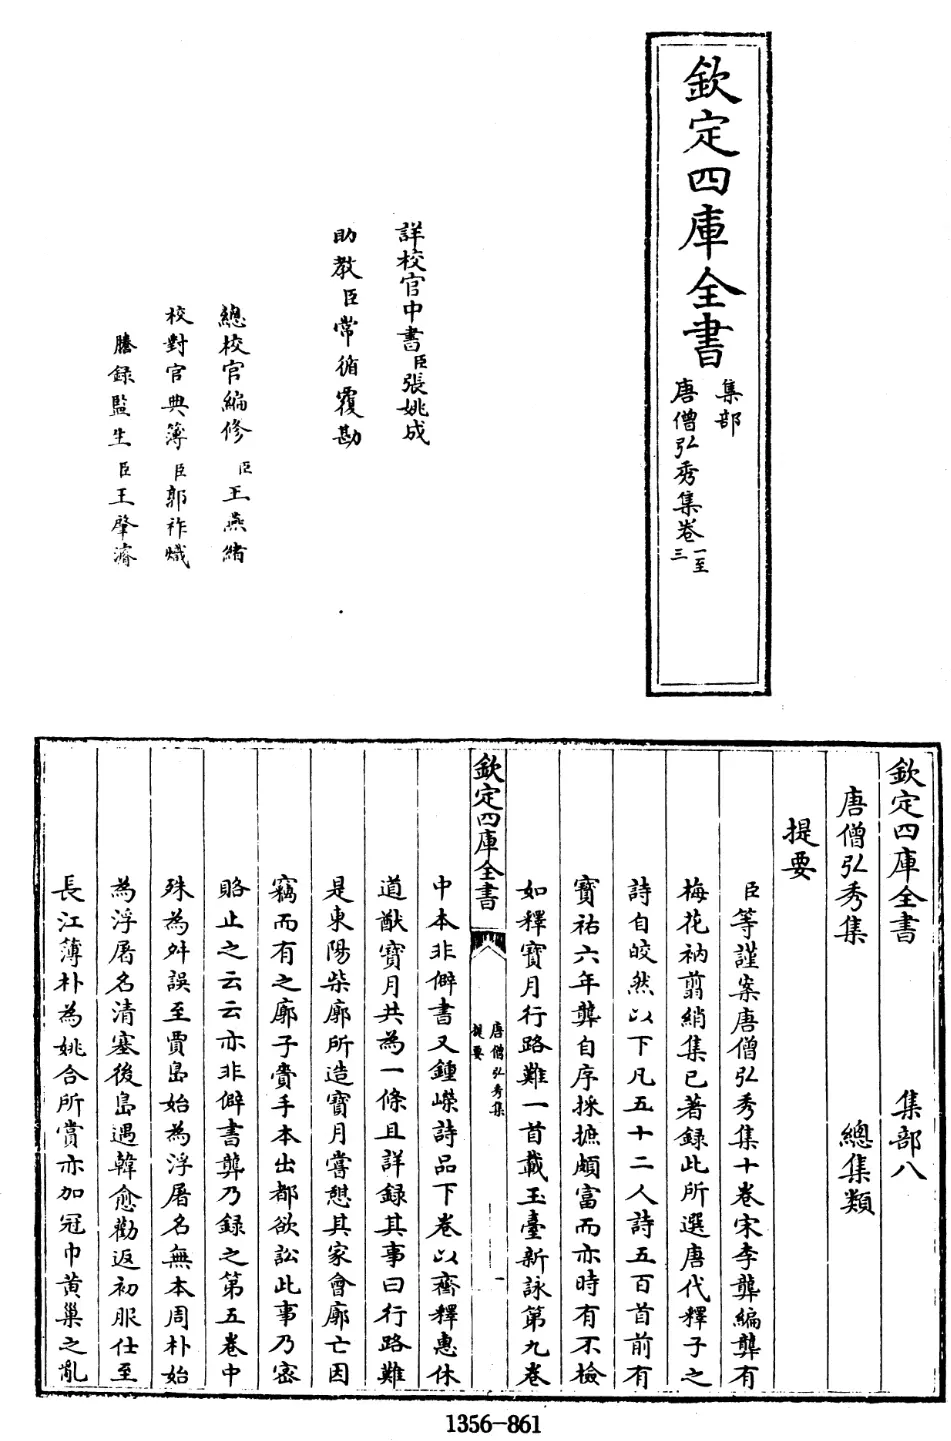 欽定四庫全書
集部
唐僧弘秀集卷一至三
詳校官中書臣張姚成
助教臣常循覆勘
總校官編修臣王燕緒
校對官典簿臣郭祚熾
謄錄監生臣王肇濟
欽定四庫全書 集部八
唐僧弘秀集 總集類
提要
臣等謹案唐僧弘秀集十卷宋李龏編龏有
梅花衲翦綃集已著録此所選唐代釋子之
詩自皎然以下凡五十二人詩五百首前有
寶祐六年龏自序採摭頗富而亦時有不檢
如釋寶月行路難一首載玉臺新詠第九卷
欽定四庫全書
唐僧弘秀集
提要
一
中本非僻書又鍾嶸詩品下卷以齊釋惠休
道猷寶月共為一條且詳録其事曰行路難
是東陽柴廓所造寶月嘗憇其家會廓亡因
竊而有之廓子賫手本出都欲訟此事乃密
賂止之云云亦非僻書龏乃録之第五卷中
殊為舛誤至賈島始為浮屠名無本周朴始
為浮屠名清塞後島遇韓愈勸返初服仕至
長江簿朴為姚合所賞亦加冠巾黄巢之亂
1356-861